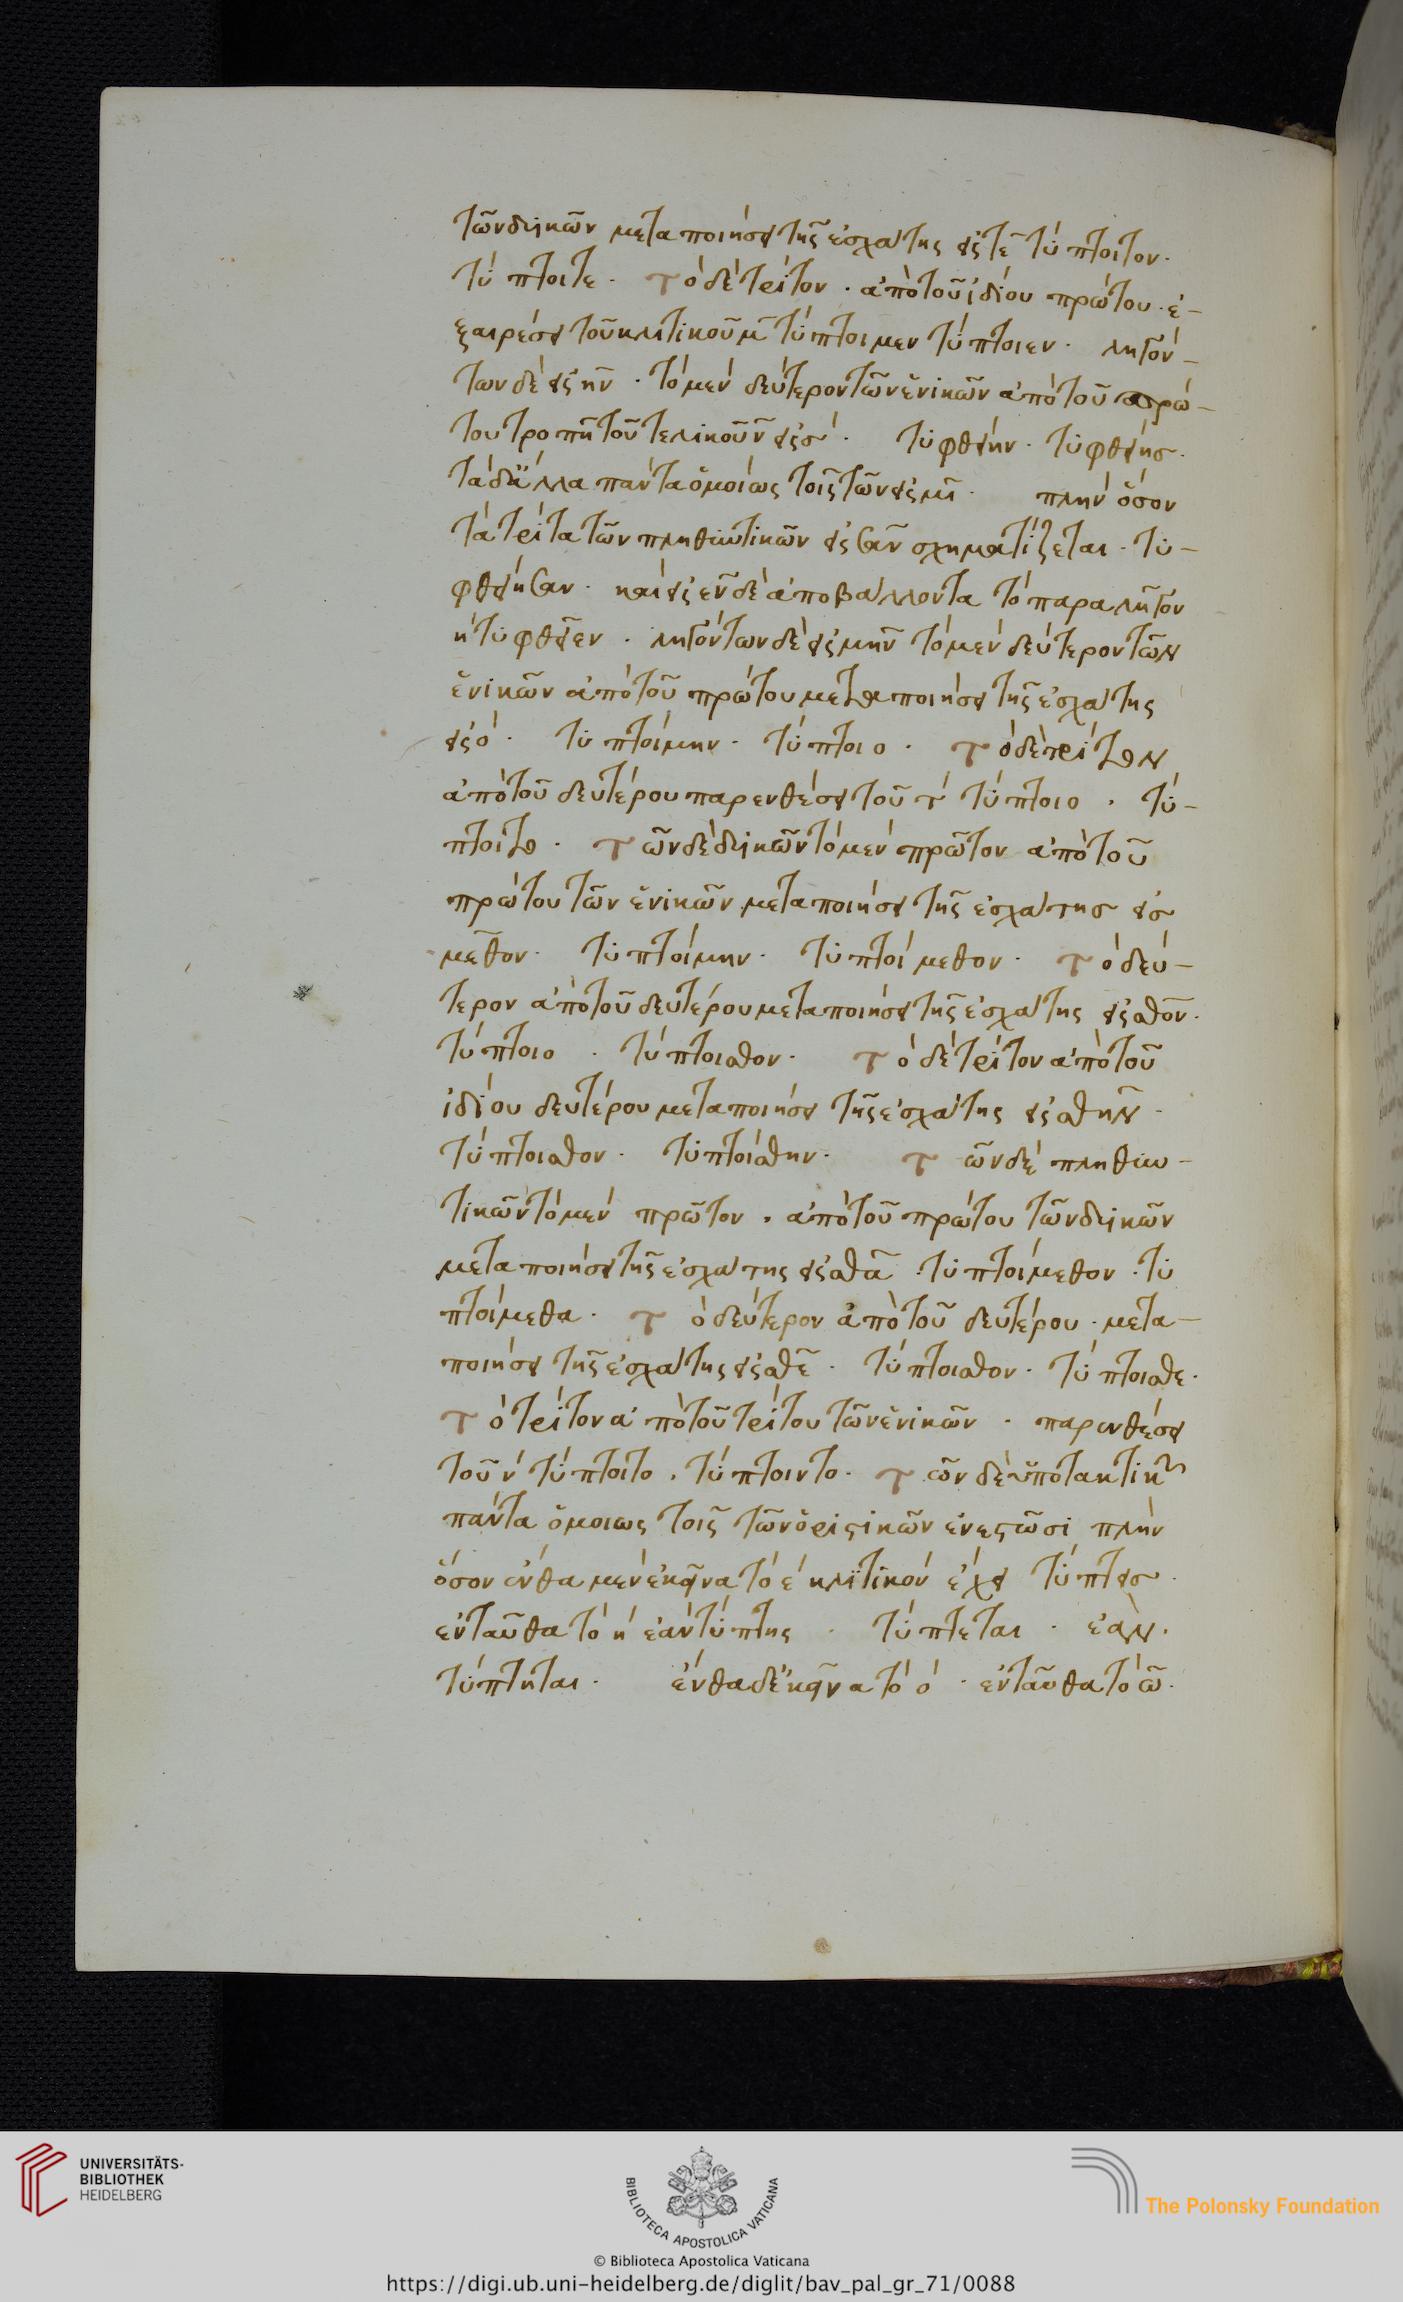 τῶν δϊκῶν μεταποιήσει τῆς ἐσχάτης εἰς τε τύπτοιτον.
τύπτοιτε. Τὸ δὲ τρίτον. ἀπὸ τοῦ ἰδίου πρώτου. ἐ-
ξαιρέσει τοῦ κλιτικοῦ μ τύπτοιμεν τύπτοιεν. ληγόν-
των δὲ εἰς ην. τὸ μὲν δεύτερον τῶν ἑνικῶν ἀπὸ τοῦ πρώ-
του τροπῇ τοῦ τελικοῦ ν εἰς σ. τυφθείην. τυφθείησ.
τὰ δ' ἄλλα πάντα ὁμοίως τοῖς τῶν εἰς μι. πλὴν ὅσον
τὰ τρίτα τῶν πληθυντικῶν εἰς σαν σχηματίζεται. τυ-
φθείησαν. καὶ εἰς εν δὲ ἀποβάλλοντα τὸ παραλῆγον
η τυφθεῖεν. ληγόντων δὲ εἰς μην τὸ μὲν δεύτερον τῶν
ἑνικῶν ἀπὸ τοῦ πρώτου μεταποιήσει τῆς ἐσχάτης
εἰς ο. τυπτοίμην. τύπτοιο. Τὸ δὲ τρίτον
ἀπὸ τοῦ δευτέρου παρενθέσει τοῦ τ τύπτοιο. τύ-
πτοιτο. Τῶν δὲ δϊκῶν τὸ μὲν πρῶτον ἀπὸ τοῦ
πρώτου τῶν ἑνικῶν μεταποιήσει τῆς ἐσχάτης εἰς
μεθον. τυπτοίμην. τυπτοίμεθον. Τὸ δεύ-
τερον ἀπὸ τοῦ δευτέρου μεταποιήσει τῆς ἐσχάτης εἰς σθον.
τύπτοιο. τύπτοισθον. Τὸ δὲ τρίτον ἀπὸ τοῦ
ἰδίου δευτέρου μεταποιήσει τῆς ἐσχάτης εἰς σθην.
τύπτοισθον. τυπτοίσθην. Τῶν δὲ πληθυν-
τικῶν τὸ μὲν πρῶτον. ἀπὸ τοῦ πρώτου τῶν δϊκῶν
μεταποιήσει τῆς ἐσχάτης εἰς σθα. τυπτοίμεθον. τυ
πτοίμεθα. Τὸ δεύτερον ἀπὸ τοῦ δευτέρου. μετα-
ποιήσει τῆς ἐσχάτης εἰς σθε. τύπτοισθον. τύπτοισθε.
Τὸ τρίτον ἀπὸ τοῦ τρίτου τῶν ἑνικῶν. παρενθέσει
τοῦ ν τύπτοιτο. τύπτοιντο. Τῶν δὲ ὑποτακτικῶν
πάντα ὁμοιως τοῖς τῶν ὁριστικῶν ἐνεστῶσι πλὴν
ὅσον ἔνθα μὲν ἐκεῖνα τὸ ε κλιτικὸν ἔχει τύπτεισ.
ἐνταῦθα τὸ η ἐὰν τύπτης. τύπτεται. ἐὰν.
τύπτηται. ἔνθα δὲ 'κεῖνα τὸ ο. ἐνταῦθα τὸ ω.
UNIVERSITÄTS-
BIBLIOTHEK
HEIDELBERG
BIBLIOTECA APOSTOLICA VATICANA
The Polonsky Foundation
© Biblioteca Apostolica Vaticana
https://digi.ub.uni-heidelberg.de/diglit/bav_pal_gr_71/0088